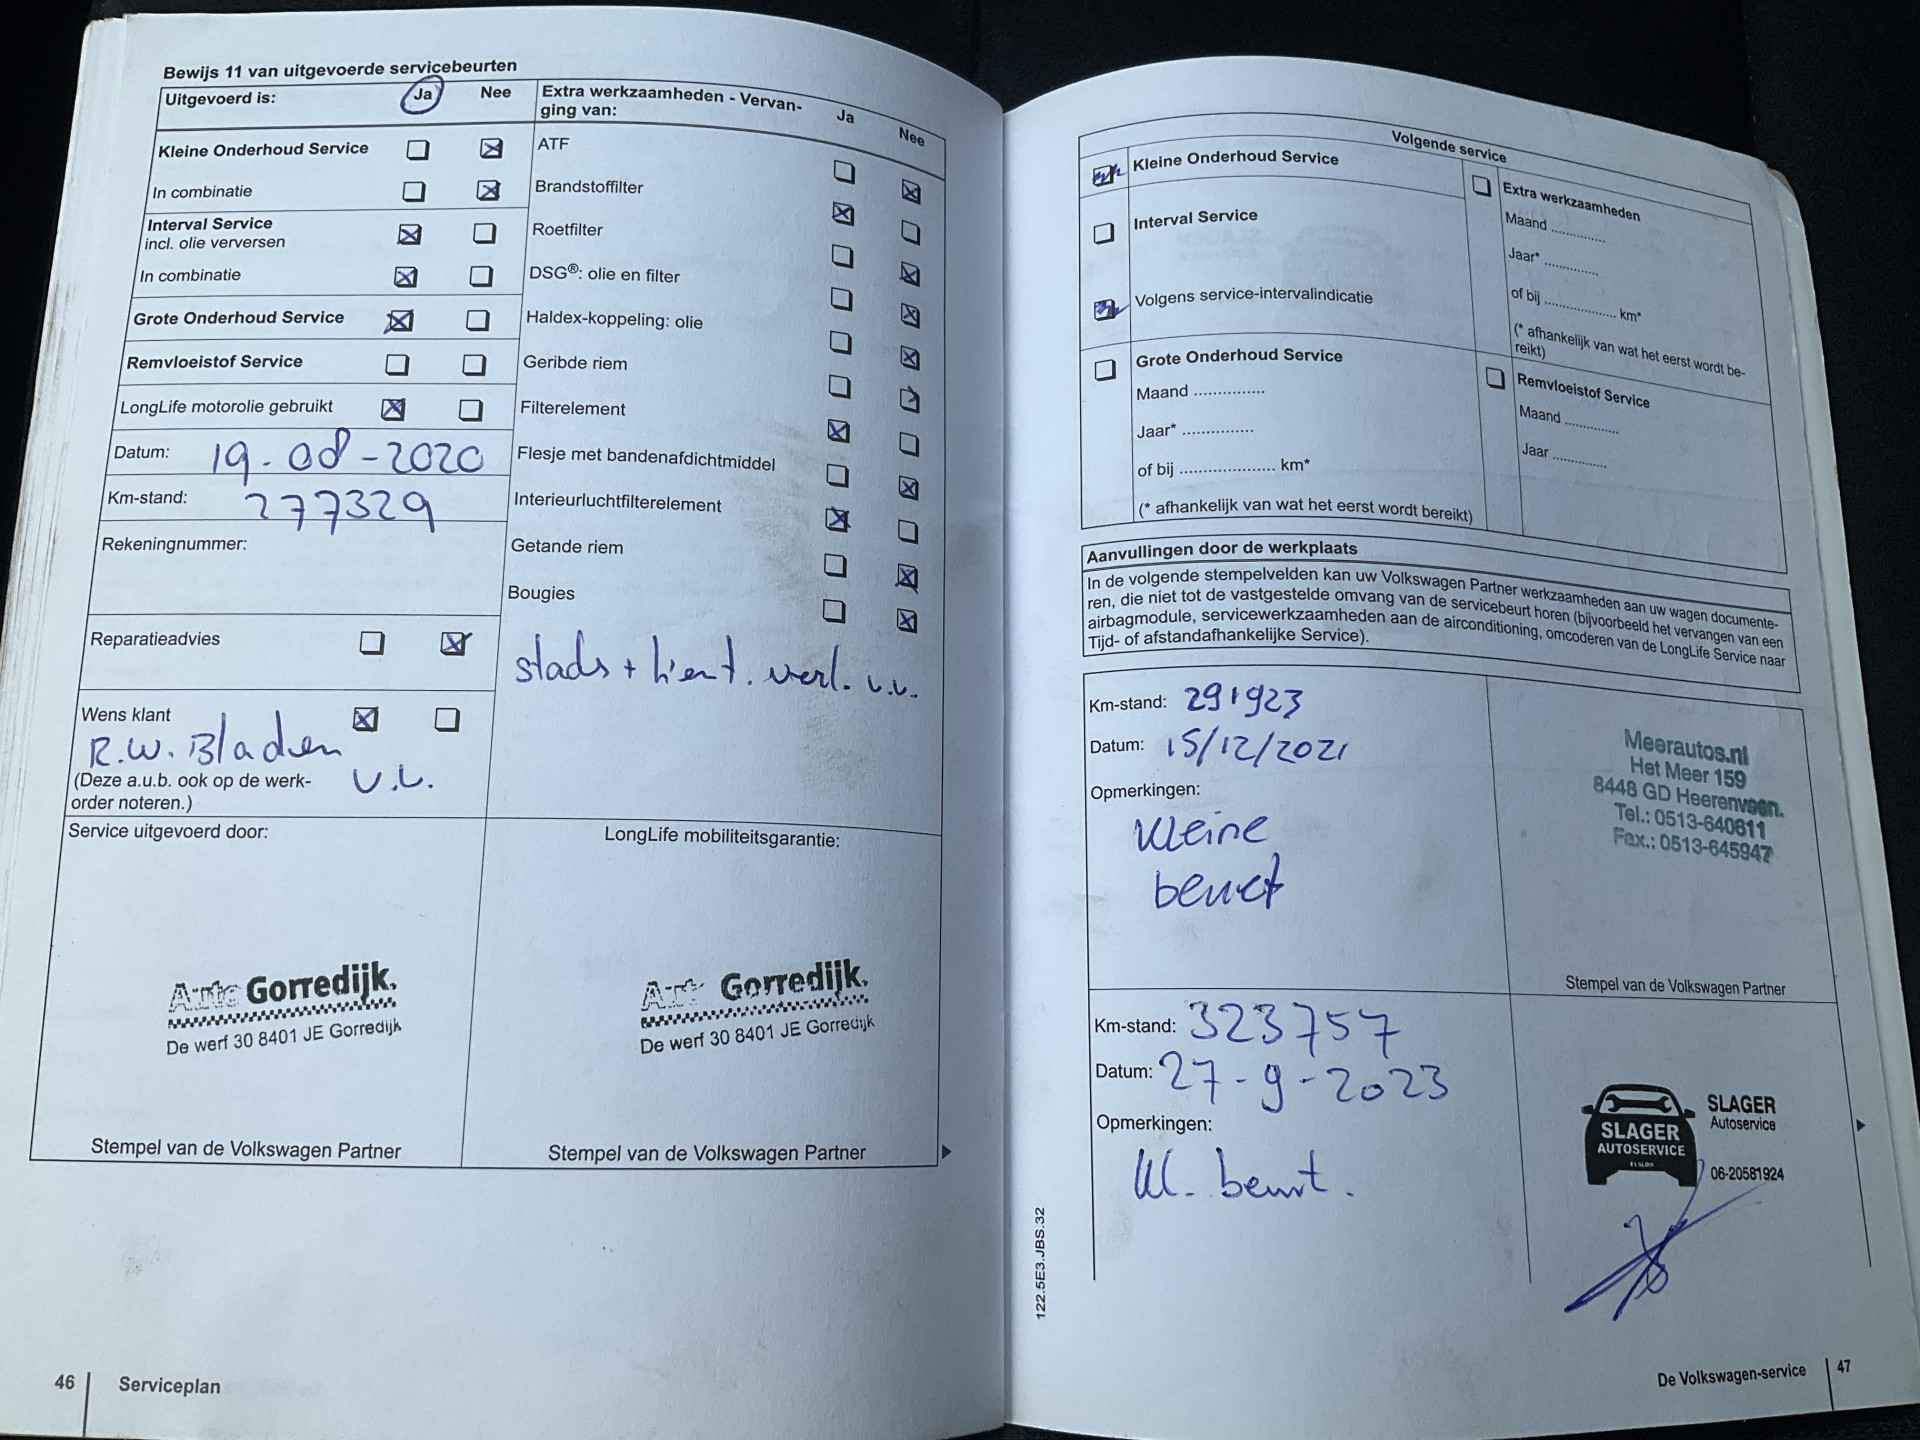 Bewijs 11 van uitgevoerde servicebeurten
Uitgevoerd is: Ja Nee
Kleine Onderhoud Service
In combinatie
Interval Service
incl. olie verversen
In combinatie
Grote Onderhoud Service
Remvloeistof Service
LongLife motorolie gebruikt
Datum: 19-08-2020
Km-stand: 277329
Rekeningnummer:
Reparatieadvies
Wens klant
R.W. Bladen
v.v.
(Deze a.u.b. ook op de werk-
order noteren.)
Extra werkzaamheden - Vervan-
ging van: Ja Nee
ATF
Brandstoffilter
Roetfilter
DSG®: olie en filter
Haldex-koppeling: olie
Geribde riem
Filterelement
Flesje met bandenafdichtmiddel
Interieurluchtfilterelement
Getande riem
Bougies
stads + kent. verl. v.v.
Service uitgevoerd door:
Auto Gorredijk.
De werf 30 8401 JE Gorredijk
Stempel van de Volkswagen Partner
LongLife mobiliteitsgarantie:
Gorredijk.
De werf 30 8401 JE Gorredijk
Stempel van de Volkswagen Partner
46 Serviceplan
Volgende service
Kleine Onderhoud Service
Interval Service
Volgens service-intervalindicatie
Grote Onderhoud Service
Maand ...............
Jaar* ...............
of bij .................... km*
(* afhankelijk van wat het eerst wordt bereikt)
Extra werkzaamheden
Maand .............
Jaar* .............
of bij ................. km*
(* afhankelijk van wat het eerst wordt be-
reikt)
Remvloeistof Service
Maand .............
Jaar .............
Aanvullingen door de werkplaats
In de volgende stempelvelden kan uw Volkswagen Partner werkzaamheden aan uw wagen documente-
ren, die niet tot de vastgestelde omvang van de servicebeurt horen (bijvoorbeeld het vervangen van een
airbagmodule, servicewerkzaamheden aan de airconditioning, omcoderen van de LongLife Service naar
Tijd- of afstandafhankelijke Service).
Km-stand: 291923
Datum: 15/12/2021
Opmerkingen:
Kleine
beurt
Meerautos.nl
Het Meer 159
8448 GD Heerenveen.
Tel.: 0513-640611
Fax.: 0513-645947
Stempel van de Volkswagen Partner
Km-stand: 323757
Datum: 27-9-2023
Opmerkingen:
Kl. beurt.
SLAGER
AUTOSERVICE
SLAGER
Autoservice
06-20581924
122.5E3.JBS.32
De Volkswagen-service 47